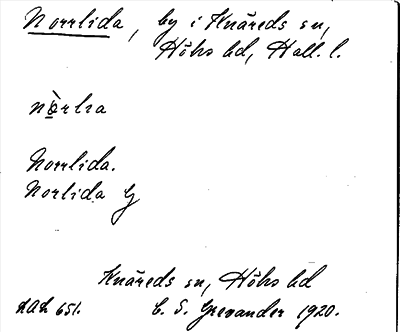 Norrlida, by i Knäreds sn,
Höks hd, Hall. l.
nòrlıa
Norrlida.
Norlida G
Knäreds sn, Höks hd
LAL 651. C. S. Grevander 1920.